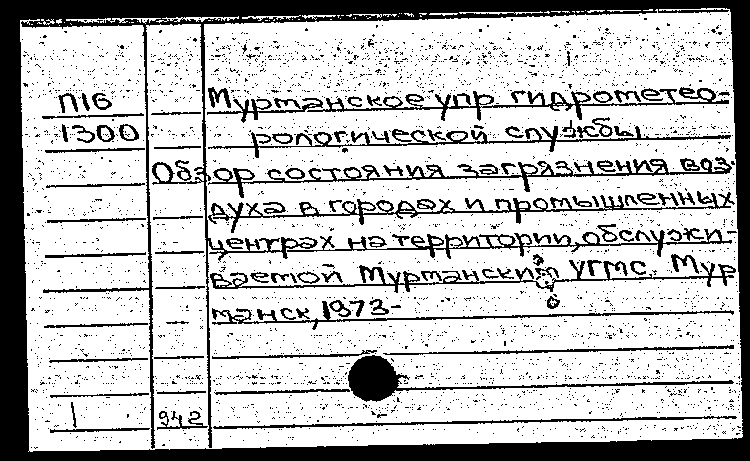 П16
1300
Мурманское упр гидрометео-
рологической службы
Обзор состояния загрязнения воз-
духа в городах и промышленных
центрах на территории, обслужи-
ваемой Мурманским УГМС. Мур
манск, 1973-
942